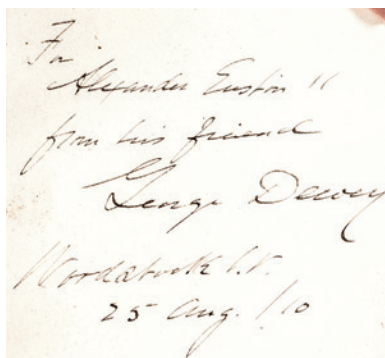 For
Alexander Euston "
from his friend
George Dewey
Woodstock Vt.
25 Aug. /10